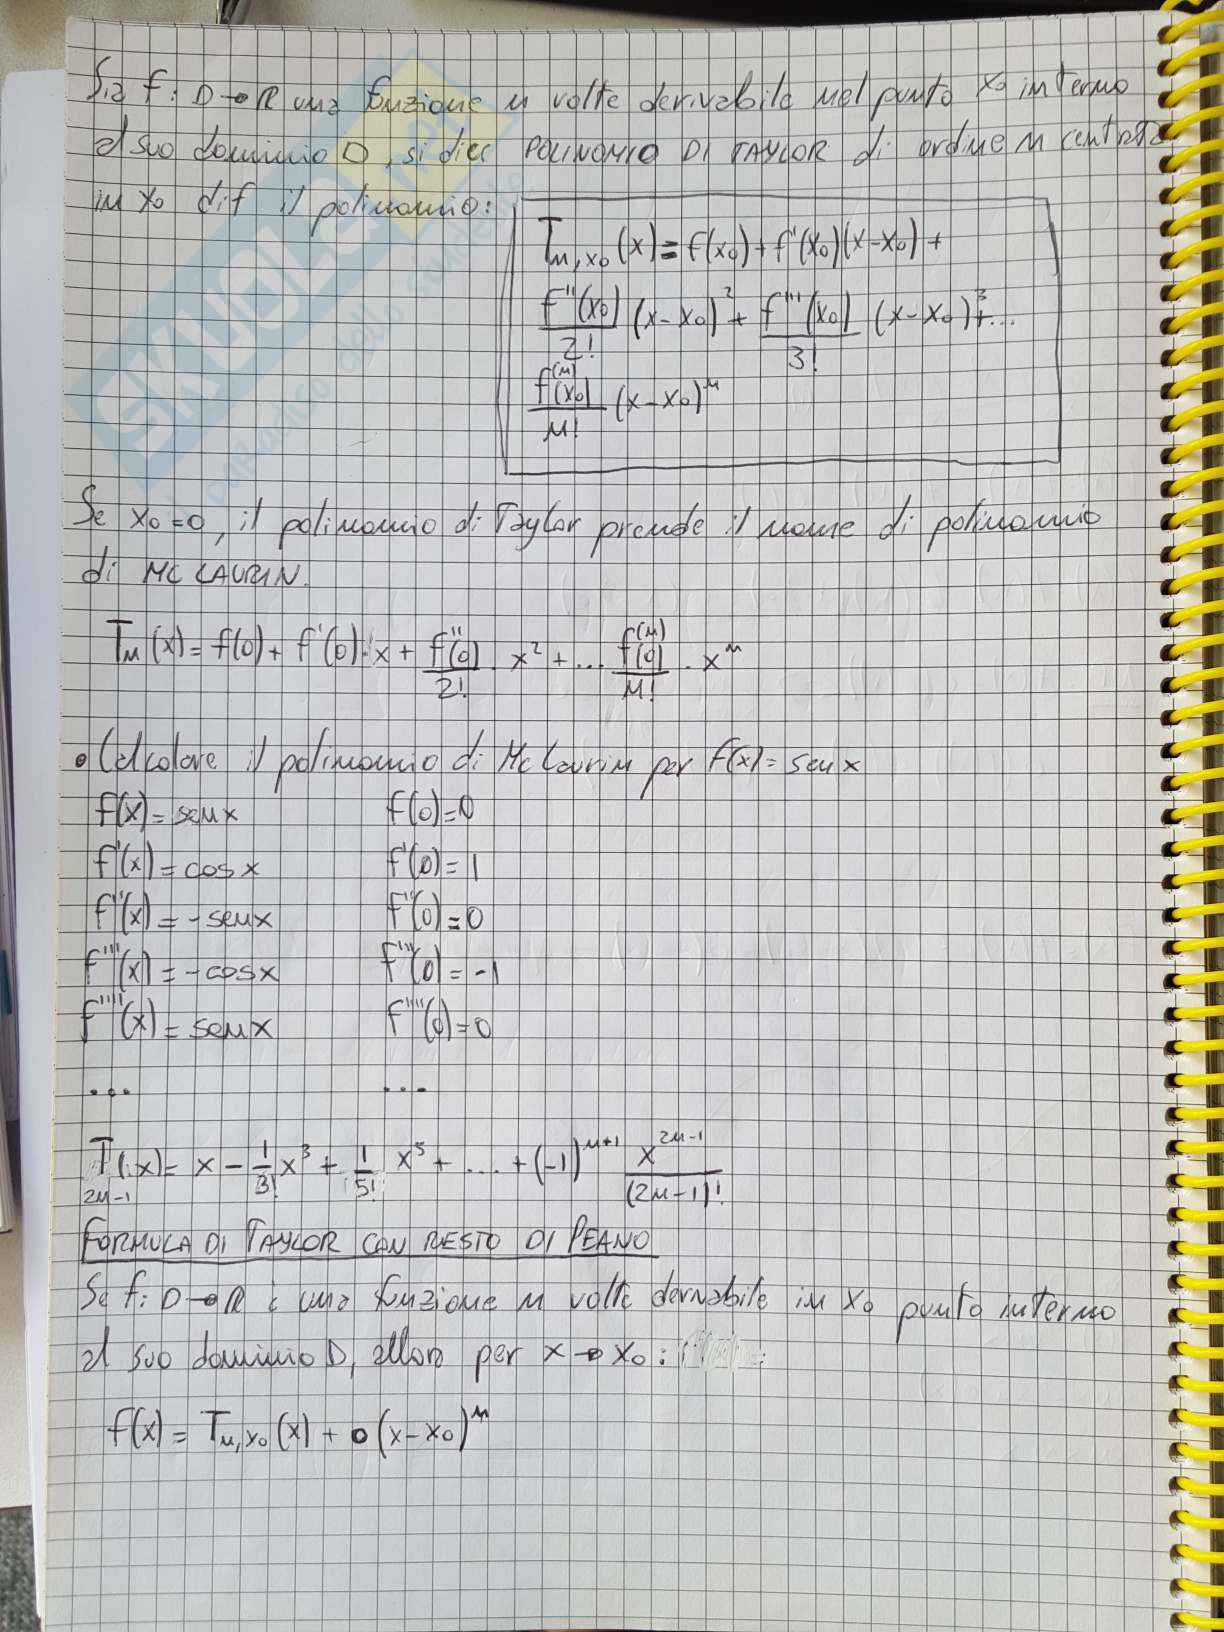 Sia f: D→R una funzione n volte derivabile nel punto x₀ interno
al suo dominio D, si dice POLINOMIO DI TAYLOR di ordine n centrato
in x₀ di f il polinomio:
Tₙ,ₓ₀(x) = f(x₀) + f'(x₀)(x-x₀) +
f''(x₀)/2! (x-x₀)² + f'''(x₀)/3! (x-x₀)³ + ...
f⁽ⁿ⁾(x₀)/n! (x-x₀)ⁿ
SKUOLA.NET
paradiso dello studente
Se x₀=0, il polinomio di Taylor prende il nome di polinomio
di MC LAURIN.
Tₙ(x) = f(0) + f'(0)·x + f''(0)/2! · x² + ... f⁽ⁿ⁾(0)/n! · xⁿ
• Calcolare il polinomio di Mc Laurin per f(x) = senx
f(x) = senx f(0)=0
f'(x) = cosx f'(0)=1
f''(x) = -senx f''(0)=0
f'''(x) = -cosx f'''(0)=-1
f''''(x) = senx f''''(0)=0
... ...
T₂ₙ₋₁(x) = x - 1/3! x³ + 1/5! x⁵ + ... + (-1)ⁿ⁺¹ x²ⁿ⁻¹/(2n-1)!
FORMULA DI TAYLOR CON RESTO DI PEANO
Se f: D→R è una funzione n volte derivabile in x₀ punto interno
al suo dominio D, allora per x→x₀:
f(x) = Tₙ,ₓ₀(x) + o(x-x₀)ⁿ